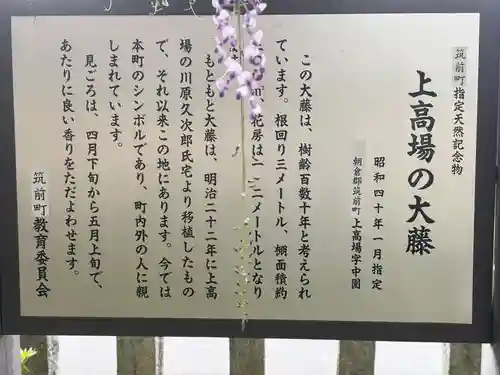 筑前町指定天然記念物
上高場の大藤
昭和四十年一月指定
朝倉郡筑前町上高場字中園
この大藤は、樹齢百数十年と考えられ
ています。根回り三メートル、棚面積約
㎡ 花房は一 二メートルとなり
ます。
もともと大藤は、明治二十二年に上高
場の川原久次郎氏宅より移植したもの
で、それ以来この地にあります。今では
本町のシンボルであり、町内外の人に親
しまれています。
見ごろは、四月下旬から五月上旬で、
あたりに良い香りをただよわせます。
筑前町教育委員会